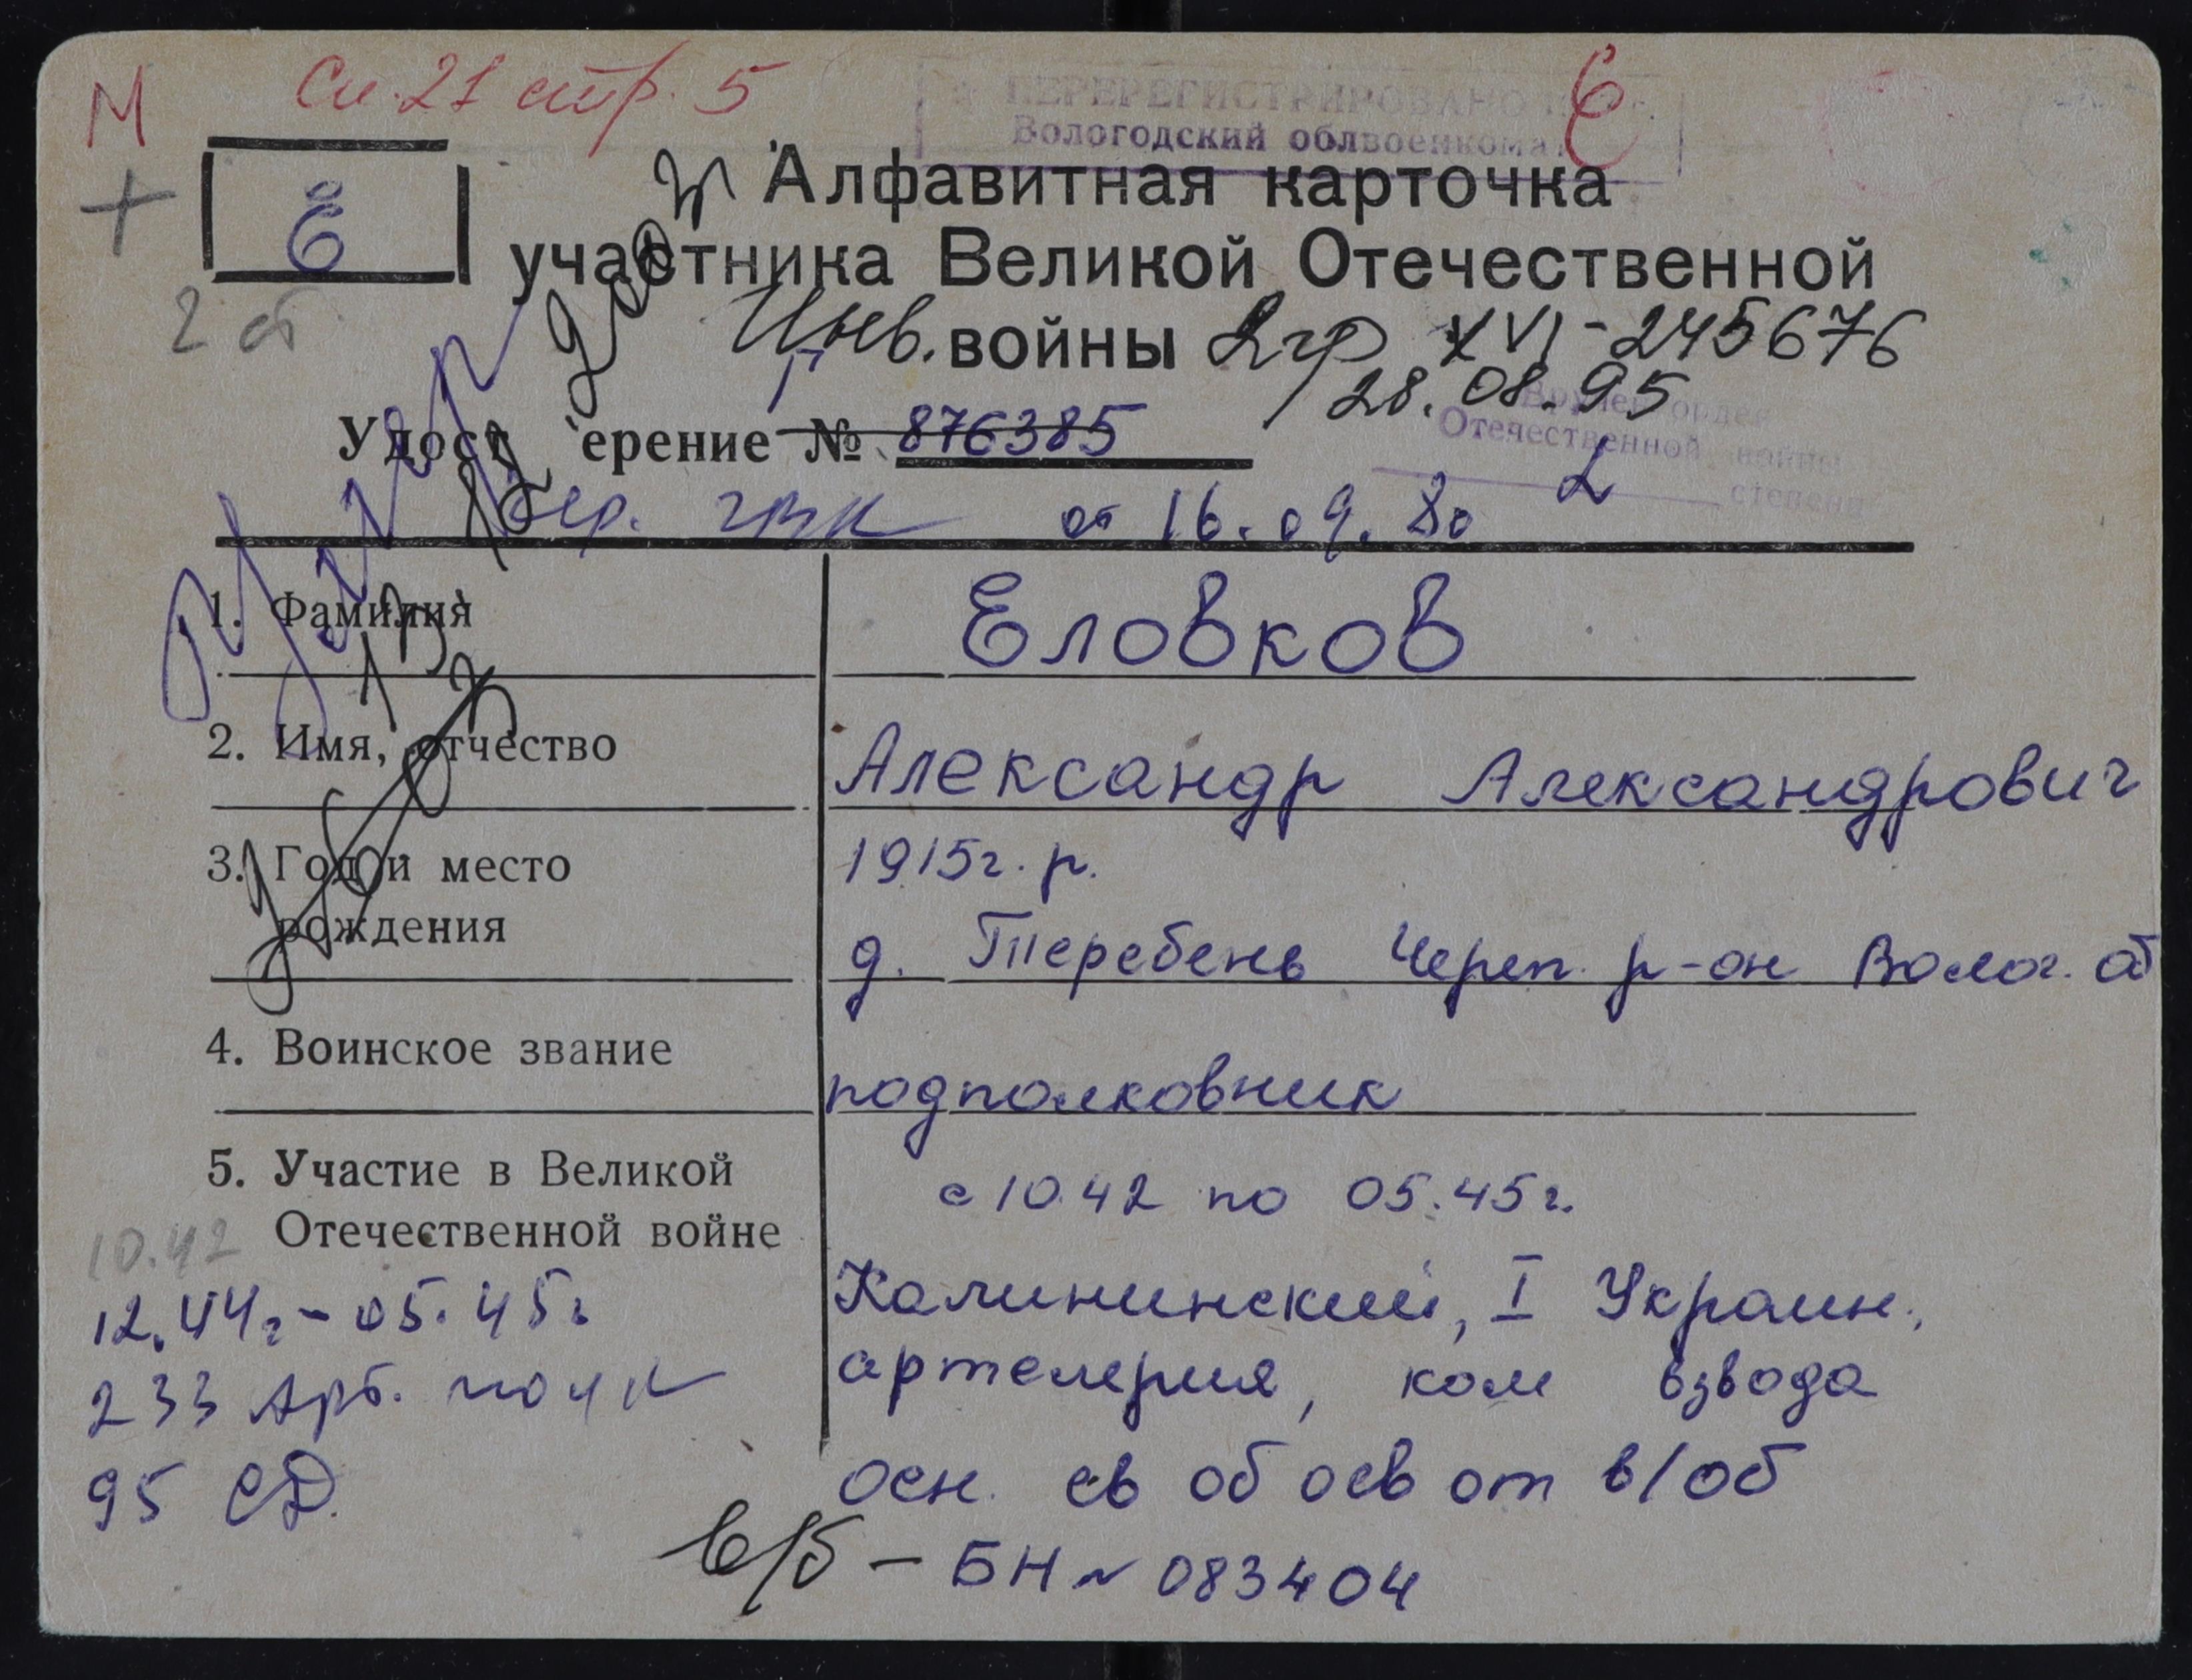 М Сп. 21 стр. 5
ПЕРЕРЕГИСТРИРОВАНО
Вологодский облвоенкомат
Е
Алфавитная карточка
участника Великой Отечественной
2 сб
Инв. войны 2 гр XVI-245676
28.08.95
Вручен орден
Отечественной войны
2 степени
Удостоверение № Г 876385
Чер. гвк от 16.09.80
1. Фамилия Еловков
2. Имя, отчество Александр Александрович
3. Год и место 1915г.р.
рождения д. Теребень Череп. р-он Волог. об
4. Воинское звание подполковник
5. Участие в Великой с 10.42 по 05.45г.
Отечественной войне
10.42
12.44г. - 05.45г Калининский, I Украин.,
233 Арт. полк артелерия, ком взвода
95 СД. осн. св об осв от в/об
в/б - БН № 083404